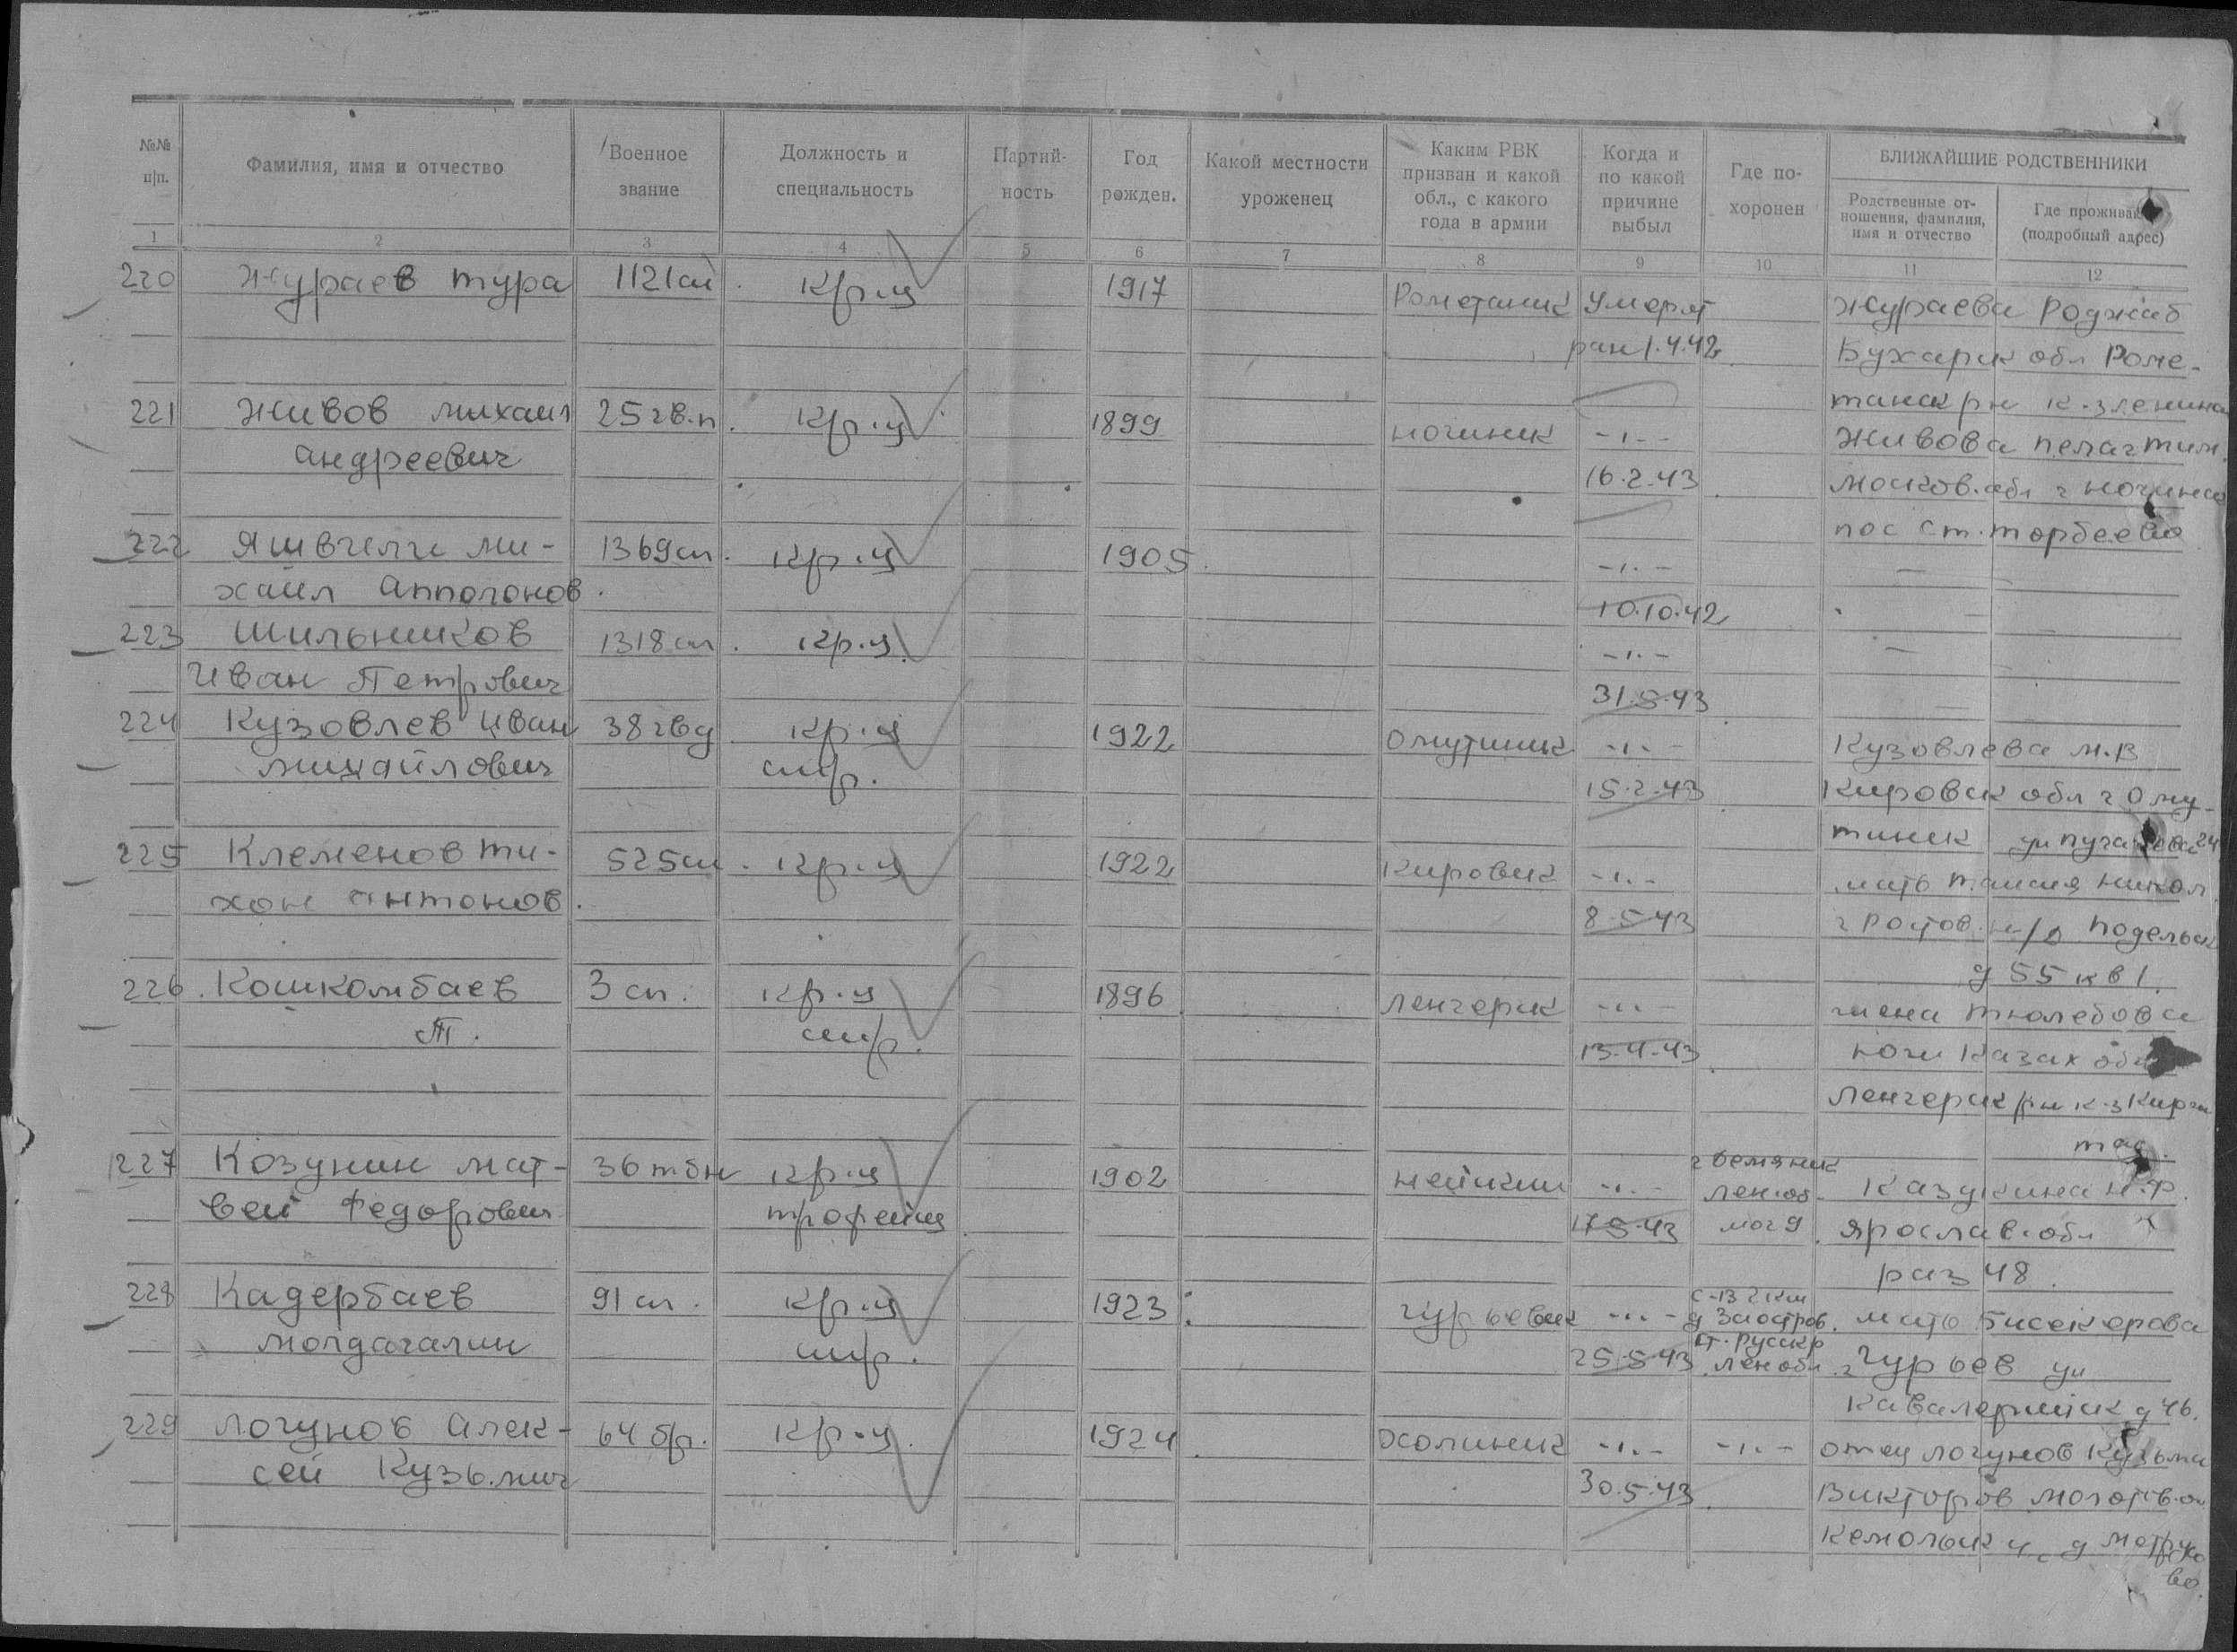 №№ п/п.
Фамилия, имя и отчество
Военное звание
Должность и специальность
Партий-ность
Год рожден.
Какой местности уроженец
Каким РВК призван и какой обл., с какого года в армии
Когда и по какой причине выбыл
Где по-хоронен
БЛИЖАЙШИЕ РОДСТВЕННИКИ
Родственные от-ношения, фамилия, имя и отчество
Где проживает (подробный адрес)
1 2 3 4 5 6 7 8 9 10 11 12
220 Жураев Тура 1121 сп кр-ц 1917 Рометаник Умер от Жураева Роджаб
ран 1.4.42 Бухарск обл Роме-
танск рн к-з Ленина
221 Живов Михаил 25 гв.п. кр-ц 1899 Ногинск -"- Живова Пелаг Тим.
Андреевич 16.2.43 Москов. обл г Ногинск
пос ст. Торбеево
222 Яшвгилги Ми- 1369 сп. кр-ц 1905 -"- —
хаил Апполонов. 10.10.42
223 Шильников 1318 сп. кр-ц. -"- —
Иван Петрович 31.5.43
224 Кузовлев Иван 38 гвд кр-ц 1922 Омутнинк -"- Кузовлева М.В
Михайлович стр. 15.2.43 Кировск обл г Ому-
тнинк ул 24
225 Клеменов Ти- 525 сп. кр-ц 1922 Кировск -"- мать Таисия Никол
хон Антонов. 8.5.43 г Ростов н/Д Подельск
д 55 кв 1.
226. Кошкомбаев 3 сп. кр-ц 1896 Ленгерск -"- жена Тюлебова
Т. стр. 13.4.43 Южн Казах обл
Ленгерск рн к-з Кирги
227 Козунин Мат- 36 тбн кр-ц 1902 -"- лен.об. Казукина Н.Ф.
вей Федорович трофейщ 17.5.43 мог 9 Ярослав. обл
раз 48.
228 Кадербаев 91 сп. кр-ц 1923 Гурьевск -"- С-В 2 км д Заостров. мать Бисекерова
Молдагалин стр. 25.5.43 лен обл. г Гурьев ул
Кавалерийск д 46.
229 Логунов Алек- 64 бр. кр-ц. 1924 -"- -"- отец Логунов Кузьма
сей Кузьмич 30.5.43. Викторов Молотов. о